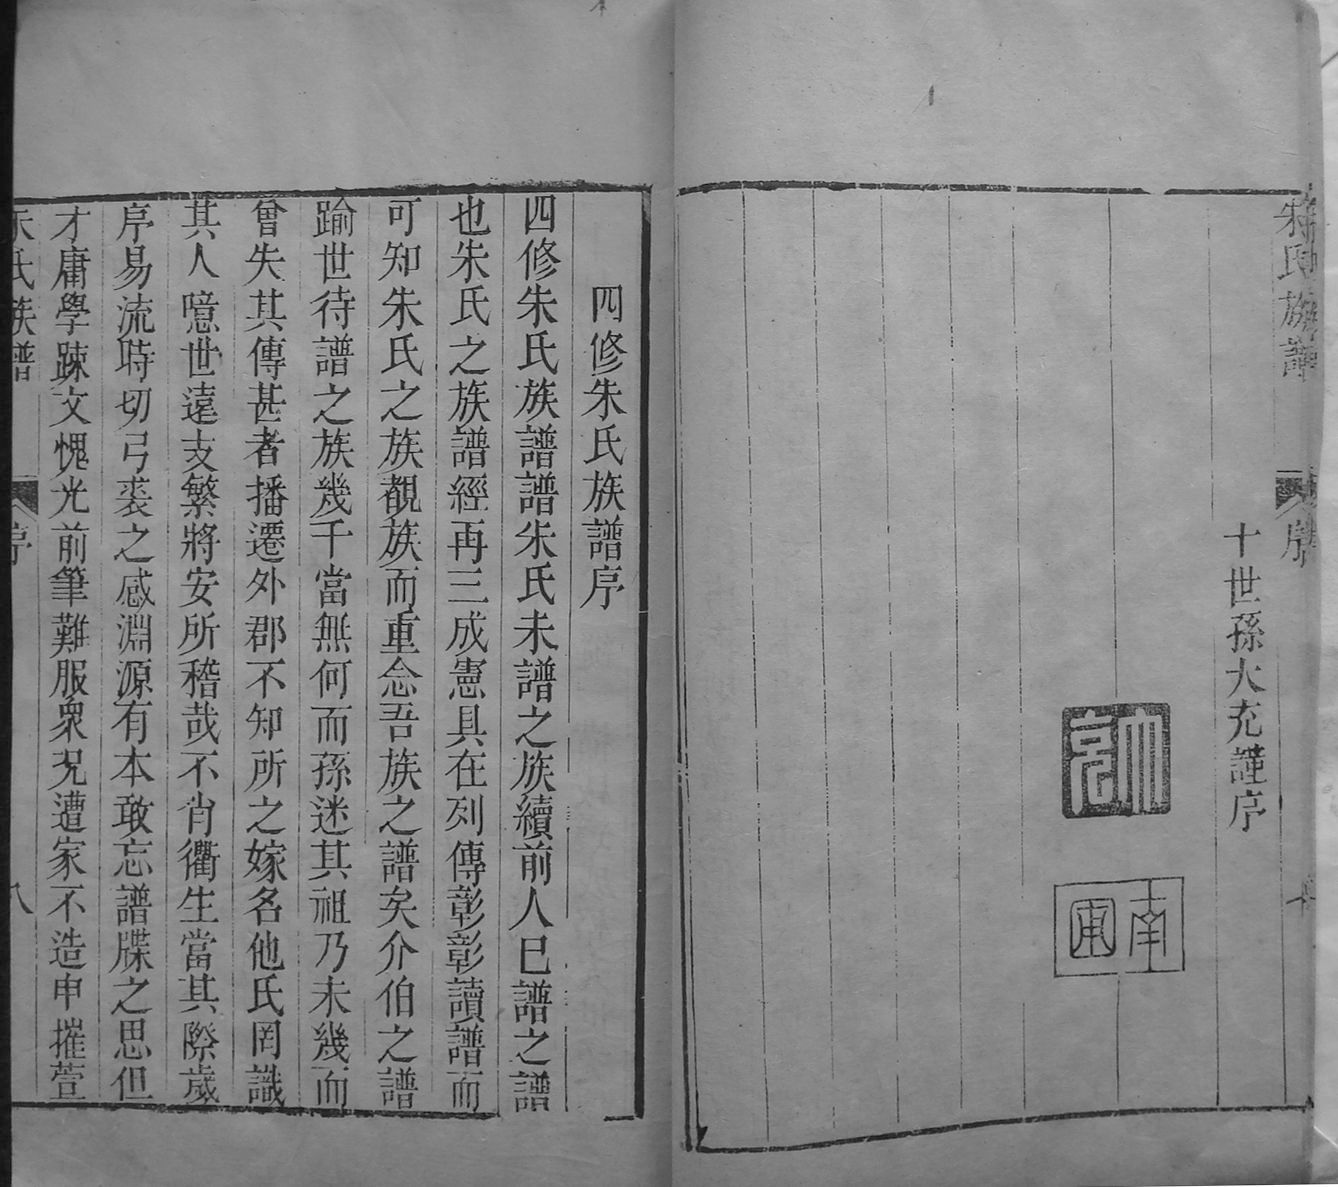 朱氏族譜
序
十世孫大充謹序
南圃
四修朱氏族譜序
四修朱氏族譜譜朱氏未譜之族續前人已譜之譜
也朱氏之族譜經再三成憲具在列傳彰彰讀譜而
可知朱氏之族覩族而重念吾族之譜矣介伯之譜
踰世待譜之族幾千當無何而孫迷其祖乃未幾而
曾失其傳甚者播遷外郡不知所之嫁名他氏罔識
其人噫世遠支繁將安所稽哉不肖衢生當其際歲
序易流時切弓裘之感淵源有本敢忘譜牒之思但
才庸學踈文愧光前筆難服衆況遭家不造申摧萱
朱氏族譜
序
八